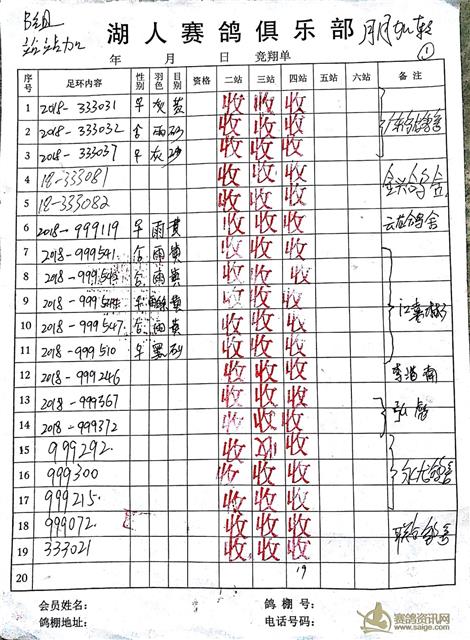 B组
站站加
湖人赛鸽俱乐部
月月加站
年 月 日 竞翔单
①
序号 足环内容 性别 羽色 目别 资格 二站 三站 四站 五站 六站 备注
1 2018-333031 灰 黄 收 收 收
2 2018-333032 雨 砂 收 收 收
3 2018-333037 灰 砂 收 收 收
4 18-333081 收 收 收
5 18-333082 收 收 收
6 2018-999119 雨 黄 收 收 收 云龙鸽舍
7 2018-999541 雨 黄 收 收 收
8 2018-999543 雨 黄 收 收 收
9 2018-999544 黄 收 收 收
10 2018-999547 雨 黄 收 收 收
11 2018-999510 黑 砂 收 收 收
12 2018-999246 收 收 收
13 2018-999367 收 收 收
14 2018-999372 收 收 收
15 999292 收 收 收
16 999300 收 收 收
17 999215 收 收 收
18 999072 收 收 收
19 333021 收 收 收
20 19
会员姓名: 鸽棚号:
鸽棚地址: 电话号码:
赛鸽资讯网
www.saige.com